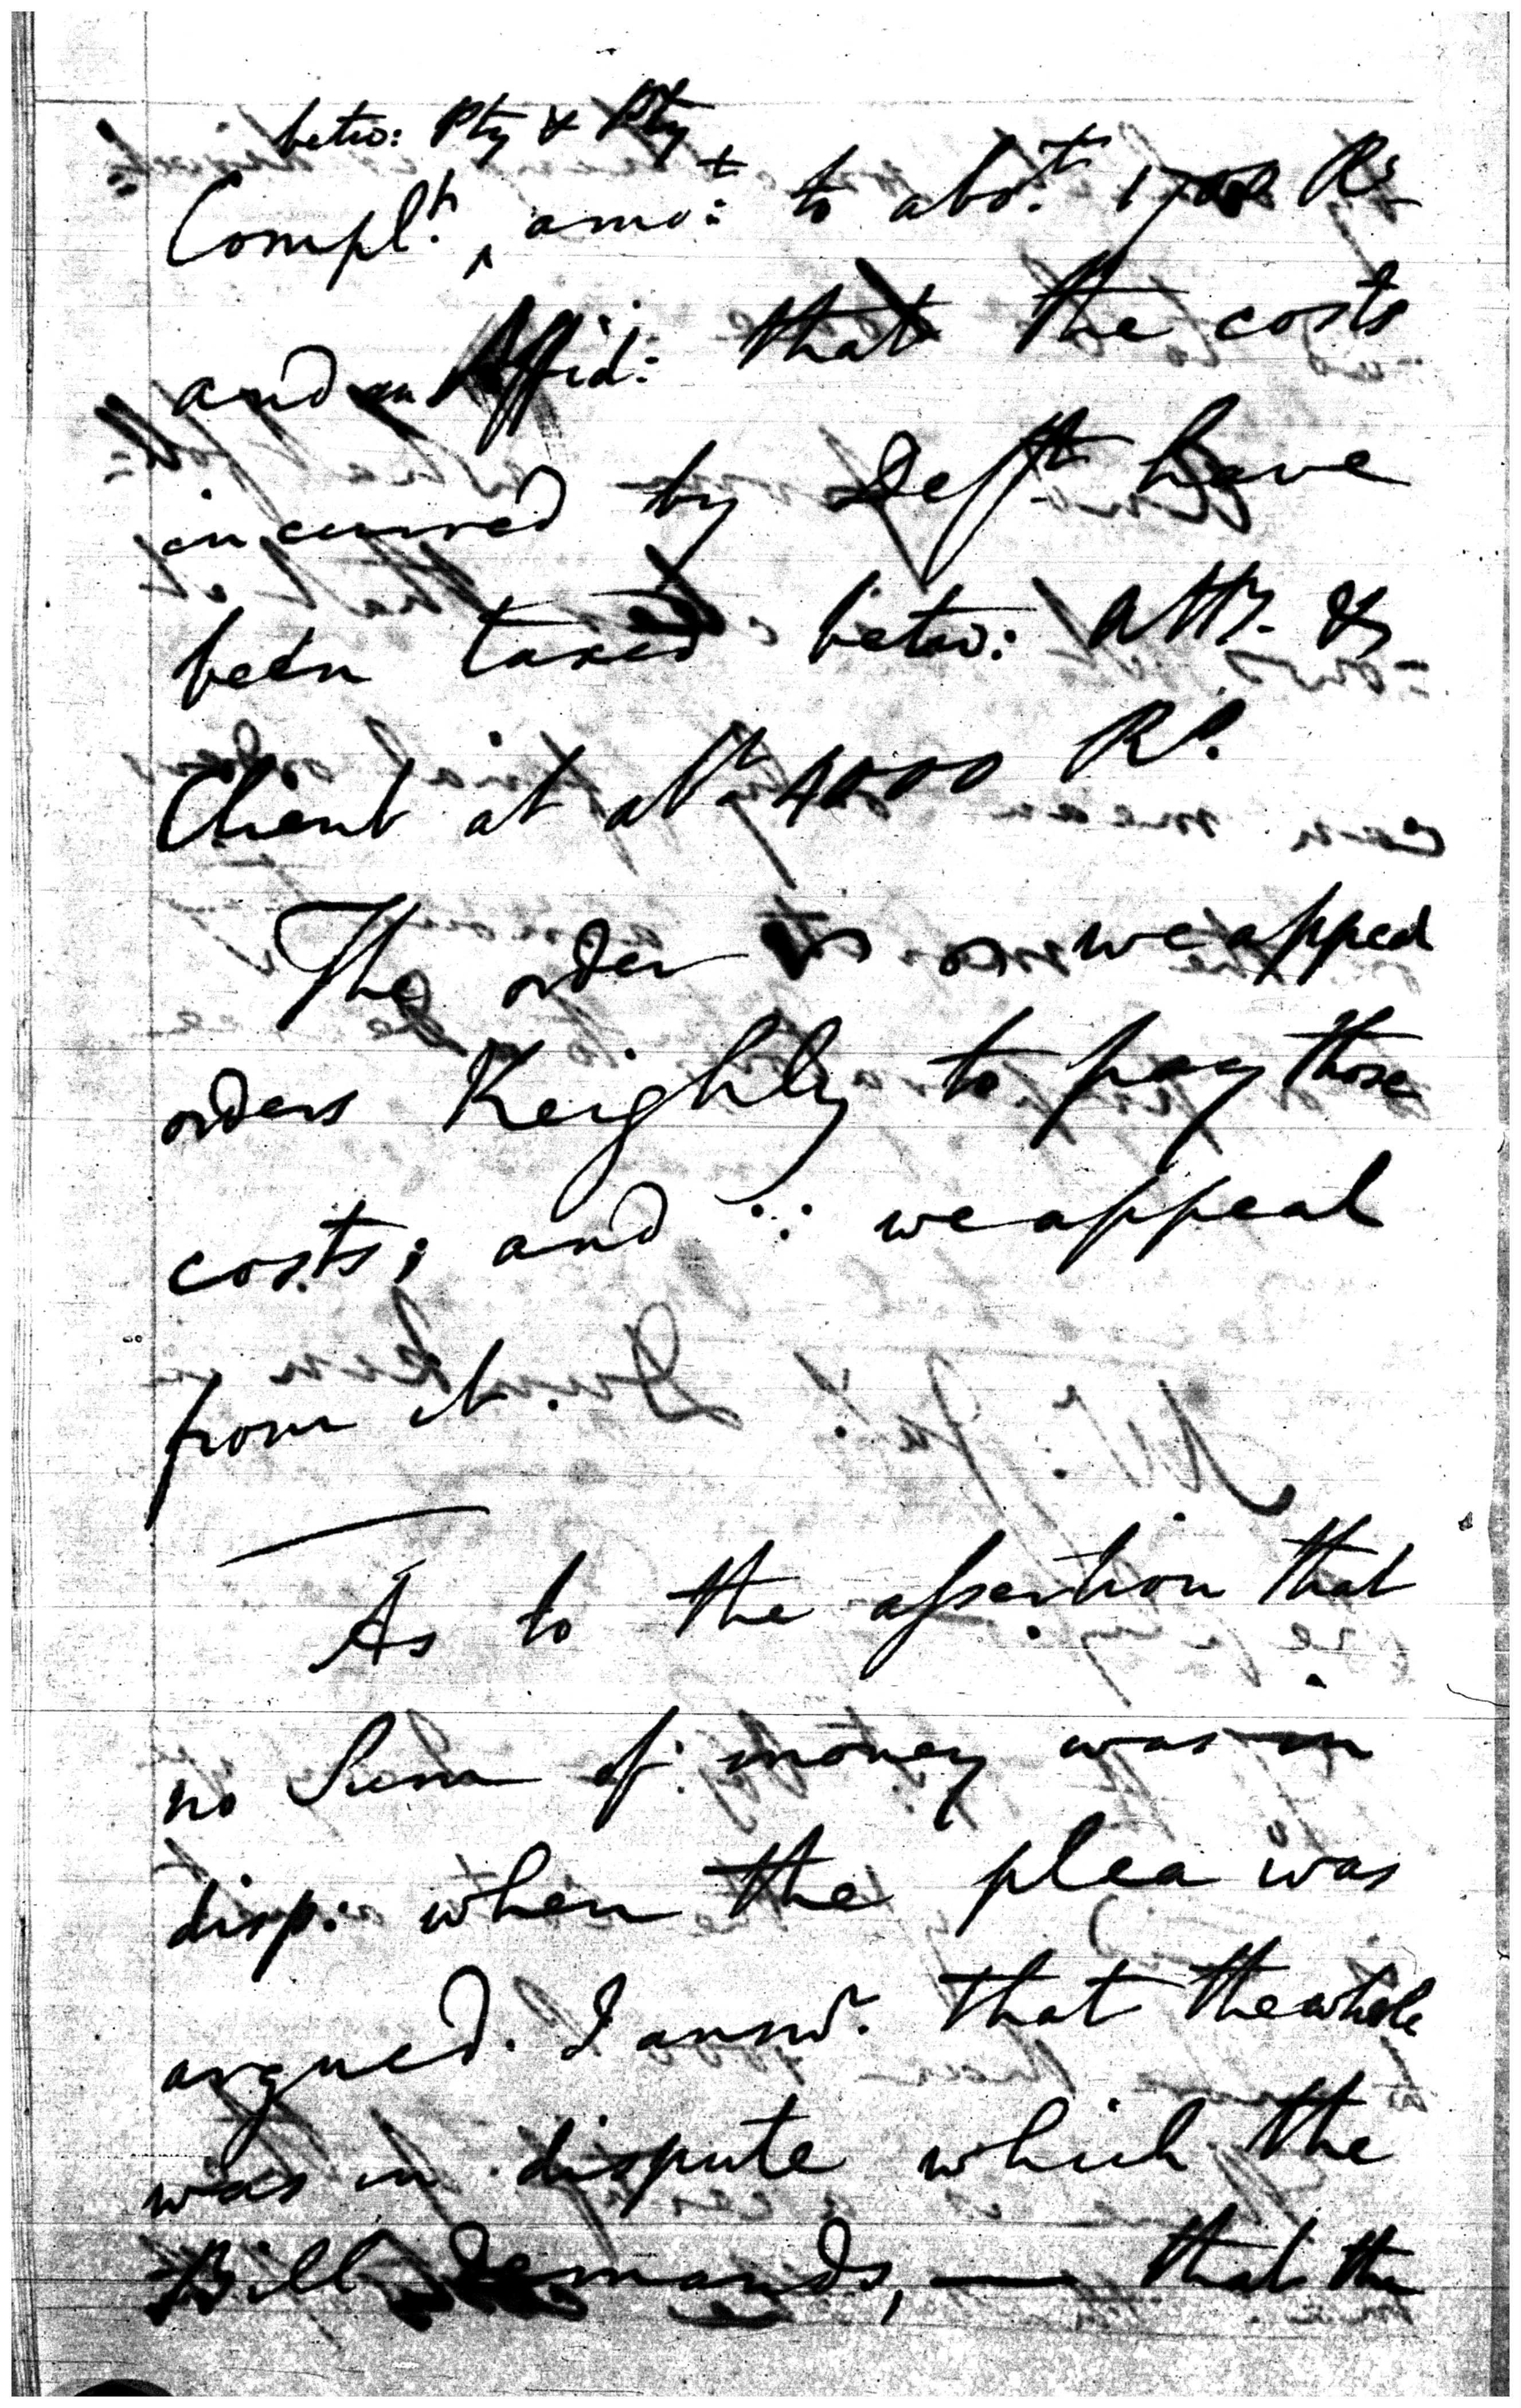 betw: Pty & Pty
Complts, amot: to abot. 1700 Rs
and an Affid: that the costs
incurred by Deft have
been taxed betw: Atty. &
Client at abt 4000 Rs.
The order is as we apped
orders Keighly to pay those
costs; and ∵ we appeal
from it.
As to the assertion that
no Sum of money was in
disp: when the plea was
argued. I answr. that the whole
was in dispute which the
Bill demands, — that the